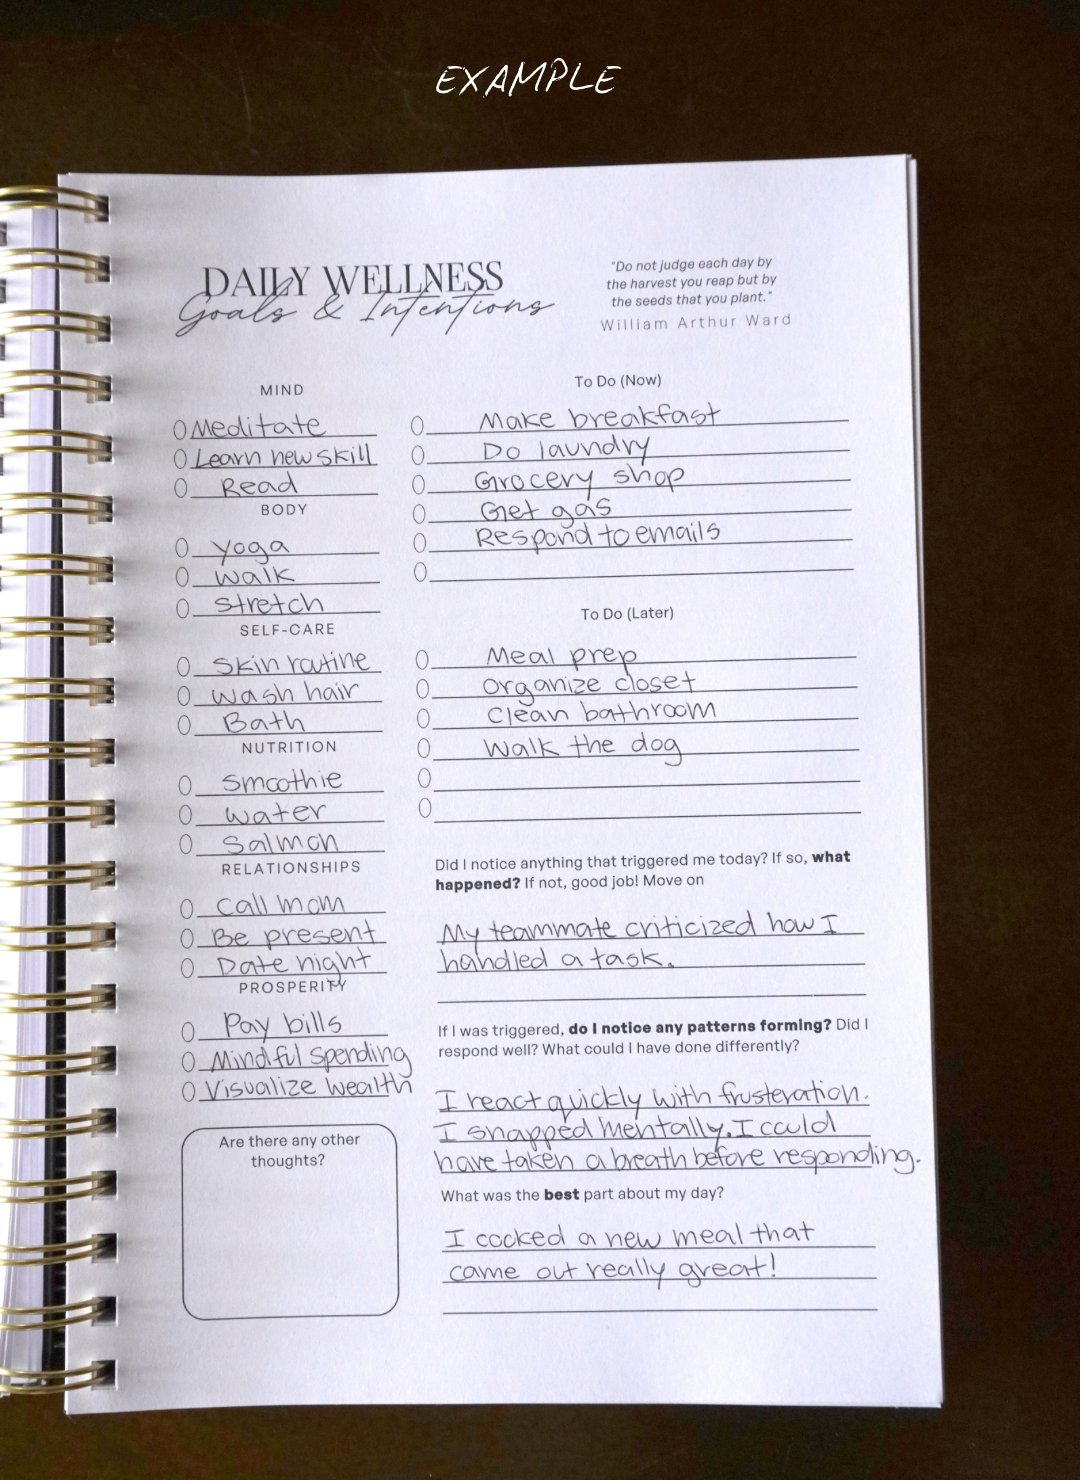 EXAMPLE
DAILY WELLNESS
Goals & Intentions
"Do not judge each day by
the harvest you reap but by
the seeds that you plant."
William Arthur Ward
MIND
Meditate
Learn new skill
Read
BODY
yoga
walk
stretch
SELF-CARE
skin routine
wash hair
Bath
NUTRITION
smoothie
water
Salmon
RELATIONSHIPS
call mom
Be present
Date night
PROSPERITY
Pay bills
Mindful spending
Visualize wealth
Are there any other
thoughts?
To Do (Now)
Make breakfast
Do laundry
Grocery shop
Get gas
Respond to emails
To Do (Later)
Meal prep
organize closet
clean bathroom
walk the dog
Did I notice anything that triggered me today? If so, what
happened? If not, good job! Move on
My teammate criticized how I
handled a task.
If I was triggered, do I notice any patterns forming? Did I
respond well? What could I have done differently?
I react quickly with frusteration.
I snapped mentally. I could
have taken a breath before responding.
What was the best part about my day?
I cooked a new meal that
came out really great!